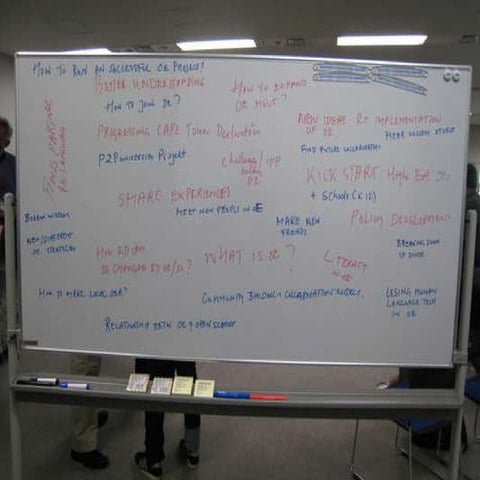 HOW TO RUN AN SUCCESSFUL OE PROJECT!
BETTER UNDERSTANDING
HOW TO JOIN OE?
HOW TO EXPAND
OE MOVT?
NEW IDEAS RE IMPLEMENTATION
OF OE!
HEAR SUCCESS STORIES
FIND FUTURE COLLABORATORS
FIND PARTNER
RE LANGUAGE
PROGRESSING CAPE TOWN Declaration
P2P UNIVERSITY Project
challenge / opp
building
OE
KICK START High Ed OE
+ SCHOOLS (K12)
SHARE EXPERIENCES
MEET NEW PEOPLE IN OE
MAKE NEW
FRIENDS
POLICY DEVELOPMENT
BORROW WISDOM
NEW/DIFFERENT
OE STRATEGIES
HOW ED CAN
BE CHANGED BY
WHAT IS OE?
LITERACY
IN OE
BREAKING DOWN
IP DIVIDE
HOW TO MAKE LOCAL OER?
COMMUNITY BUILDING COLLABORATION PROJECT.
USING HUMAN
LANGUAGE TECH
IN OE
RELATIONSHIP BETW OE & OPEN SCIENCE